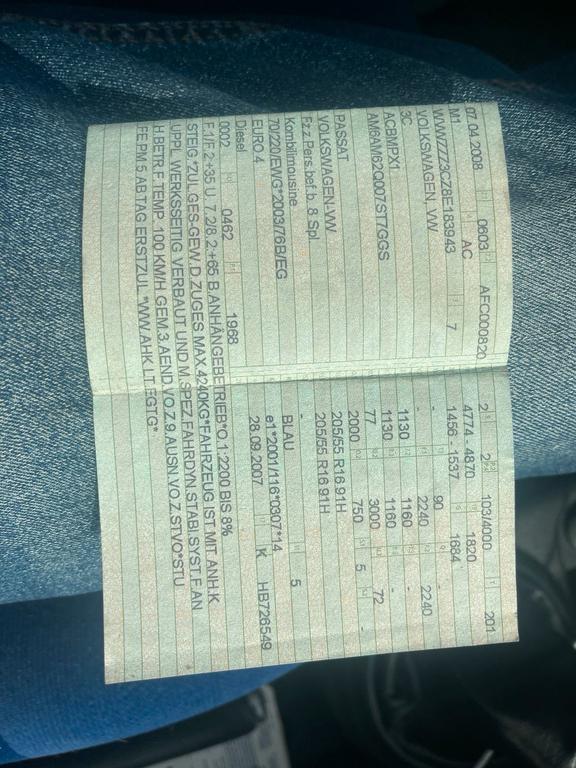 07.04.2008 0603 AFC000820
M1 AC
WVWZZZ3CZ8E183943 7
VOLKSWAGEN, VW
3C
ACBMPX1
AM6AM62Q007ST7GGS
PASSAT
VOLKSWAGEN-VW
Fz.z.Pers.bef.b. 8 Spl.
Kombilimousine
70/220/EWG*2003/76B/EG
EURO 4
Diesel
0002 0462 1968
2 2 103/4000 201
4774-4870 1820
1456-1537 1884
- - 90 -
- 2240 2240
1130 1160 -
1130 1160 -
77 3000 72
2000 750 5 -
205/55 R16 91H
205/55 R16 91H
-
BLAU 5
e1*2001/116*0307*14
28.09.2007 K HB726549
F.1/F.2:+35 U.7.2/8.2:+65 B.ANHÄNGEBETRIEB*O.1:2200 BIS 8%
STEIG.*ZUL.GES-GEW.D.ZUGES MAX.4240KG*FAHRZEUG IST MIT ANH.K
UPPL.WERKSSEITIG VERBAUT UND M.SPEZ.FAHRDYN.STABI.SYST.F.AN
H.BETR.F.TEMP. 100 KM/H GEM.3.AEND.VO.Z.9.AUSN.VO.Z.STVO*STU
FE PM 5 AB TAG ERSTZUL.*WW.AHK LT.EGTG*